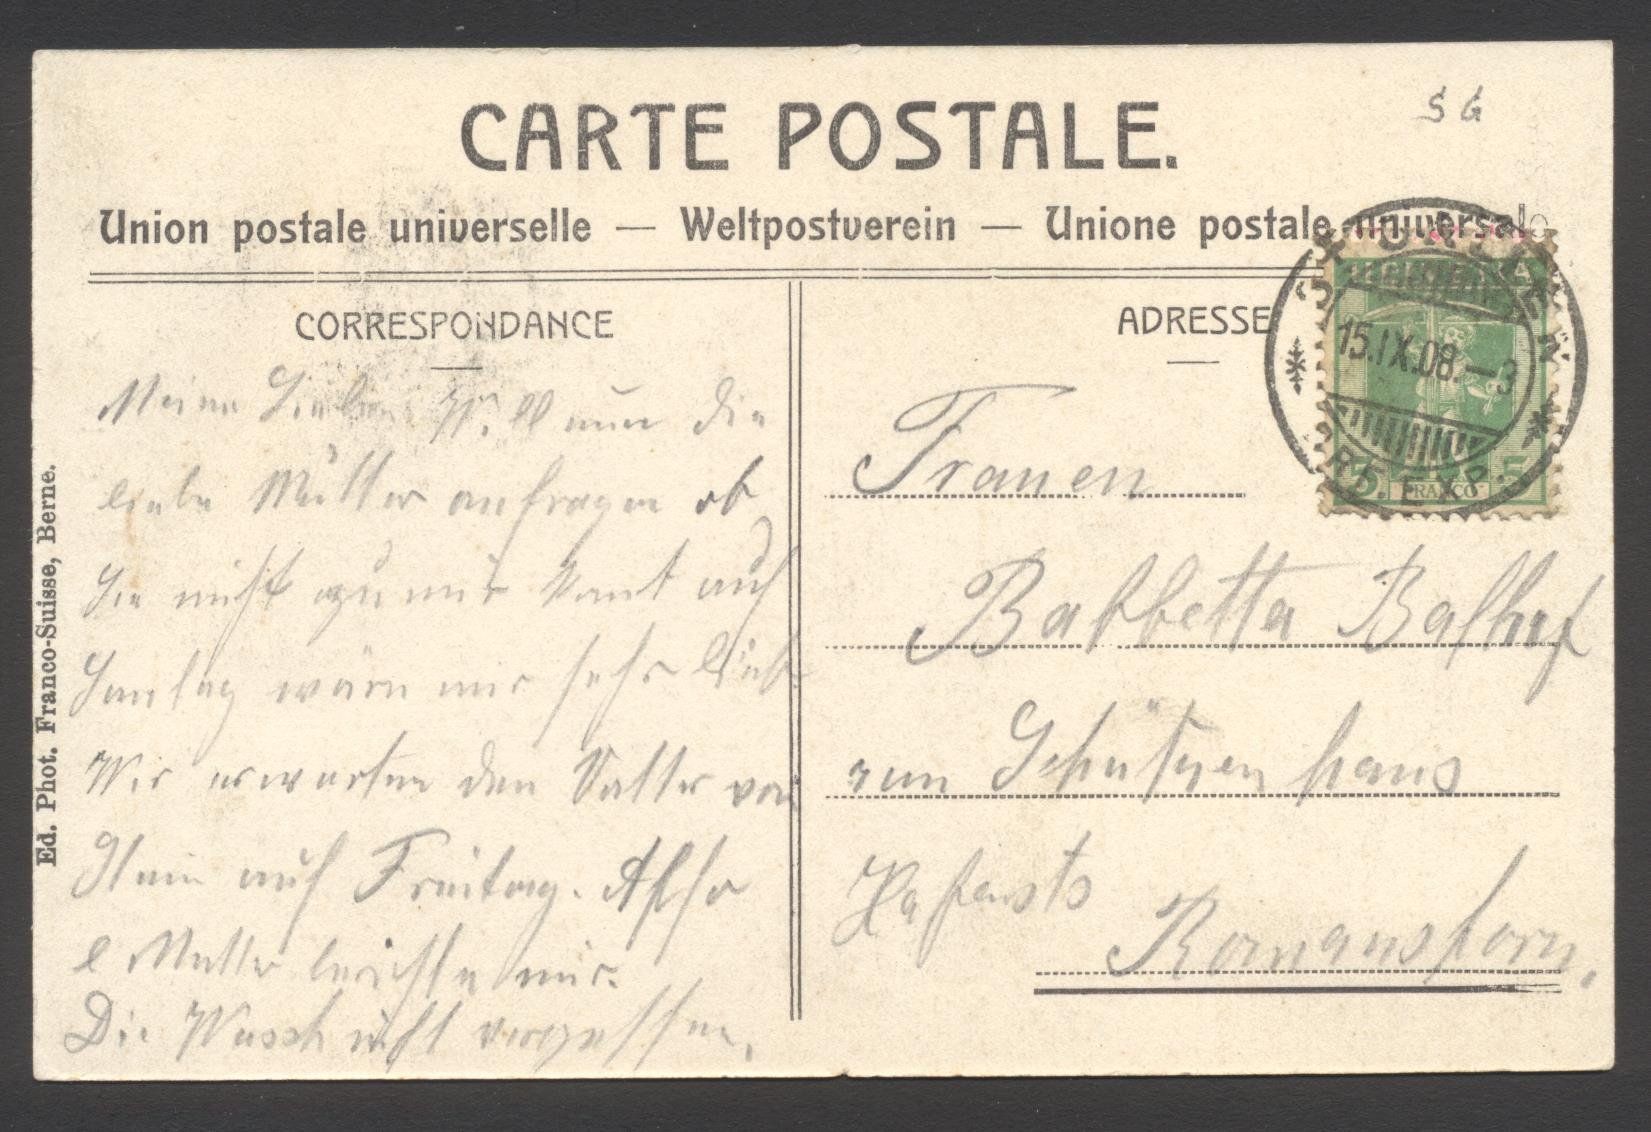 S G
CARTE POSTALE.
Union postale universelle — Weltpostverein — Unione postale universale
CORRESPONDANCE
Meine Lieben Will nun die
liebe Mutter anfragen ob
Sie nicht zu mir kommt auf
Sontag wäre mir sehr lieb
Wir erwarten den Vatter von
auf Freitag. Also
l Mutter berichte mir.
Die Wasch nicht vergessen.
Ed. Phot. Franco-Suisse, Berne.
ADRESSE
ST. GALLEN
15.IX.08.–3
BF. EXP.
HELVETIA
5 FRANCO 5
Frauen
Babbetta
zum Schützenhaus
Romanshorn.